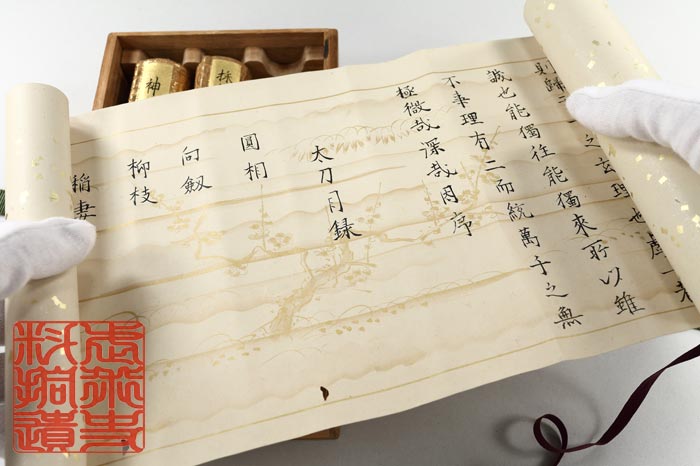 之玄理也
誠也能獨往能獨來所以雖
理有二而統萬子之無
極微哉深哉因序
太刀目録
圓相
向釼
柳枝
稲妻
神
武藝史料拾遺